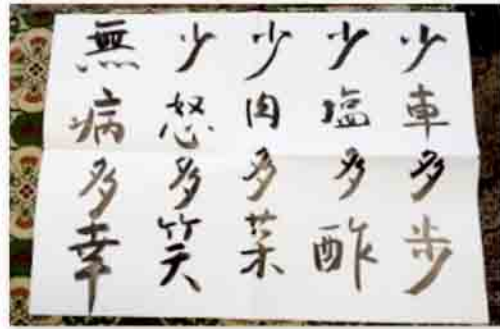 少車多歩
少塩多酢
少肉多菜
少怒多笑
無病多幸